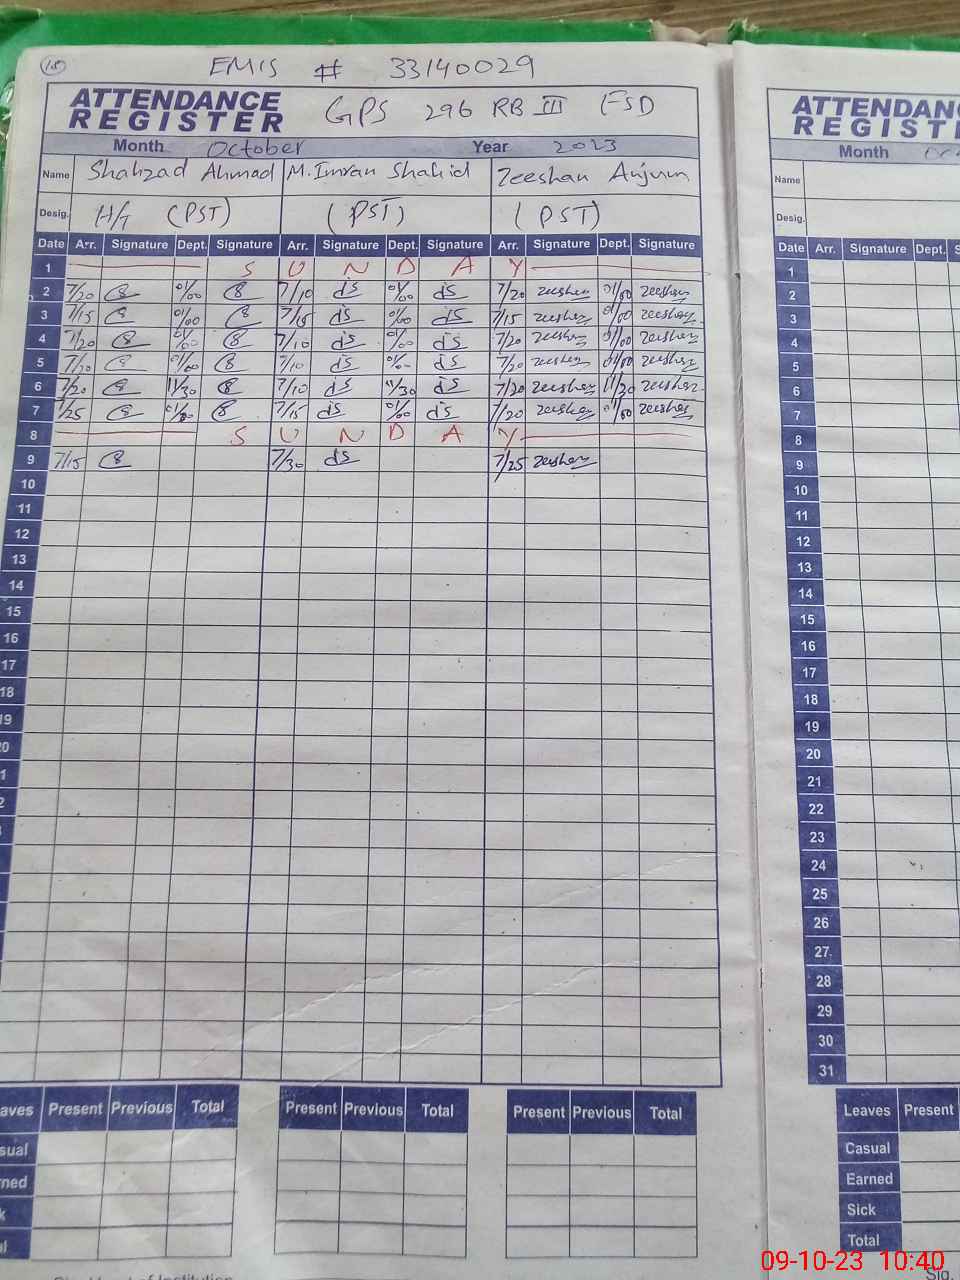 18
EMIS # 33140029
ATTENDANCE REGISTER GPS 296 RB III FSD
Month October Year 2023
Name Shahzad Ahmad M. Imran Shahid Zeeshan Anjum
Desig. H/T (PST) (PST) (PST)
Date Arr. Signature Dept. Signature Arr. Signature Dept. Signature Arr. Signature Dept. Signature
1 S U N D A Y
2 7/20 01/00 7/10 01/00 7/20 zeeshan 01/00 zeeshan
3 7/15 01/00 7/15 01/00 7/15 zeeshan 01/00 zeeshan
4 7/20 01/00 7/10 01/00 7/20 zeeshan 01/00 zeeshan
5 7/20 01/00 7/10 7/20 zeeshan 01/00 zeeshan
6 7/20 11/30 7/10 11/30 7/20 zeeshan 11/30 zeeshan
7 7/25 01/00 7/15 01/00 7/20 zeeshan 01/00 zeeshan
8 S U N D A Y
9 7/15 7/30 7/25 zeeshan
10
11
12
13
14
15
16
17
18
19
20
Leaves Present Previous Total Present Previous Total Present Previous Total
ATTENDANC
REGISTE
Month
Name
Desig.
Date Arr. Signature Dept. S
1
2
3
4
5
6
7
8
9
10
11
12
13
14
15
16
17
18
19
20
21
22
23
24
25
26
27
28
29
30
31
Leaves Present
Casual
Earned
Sick
Total
Sig.
09-10-23 10:40